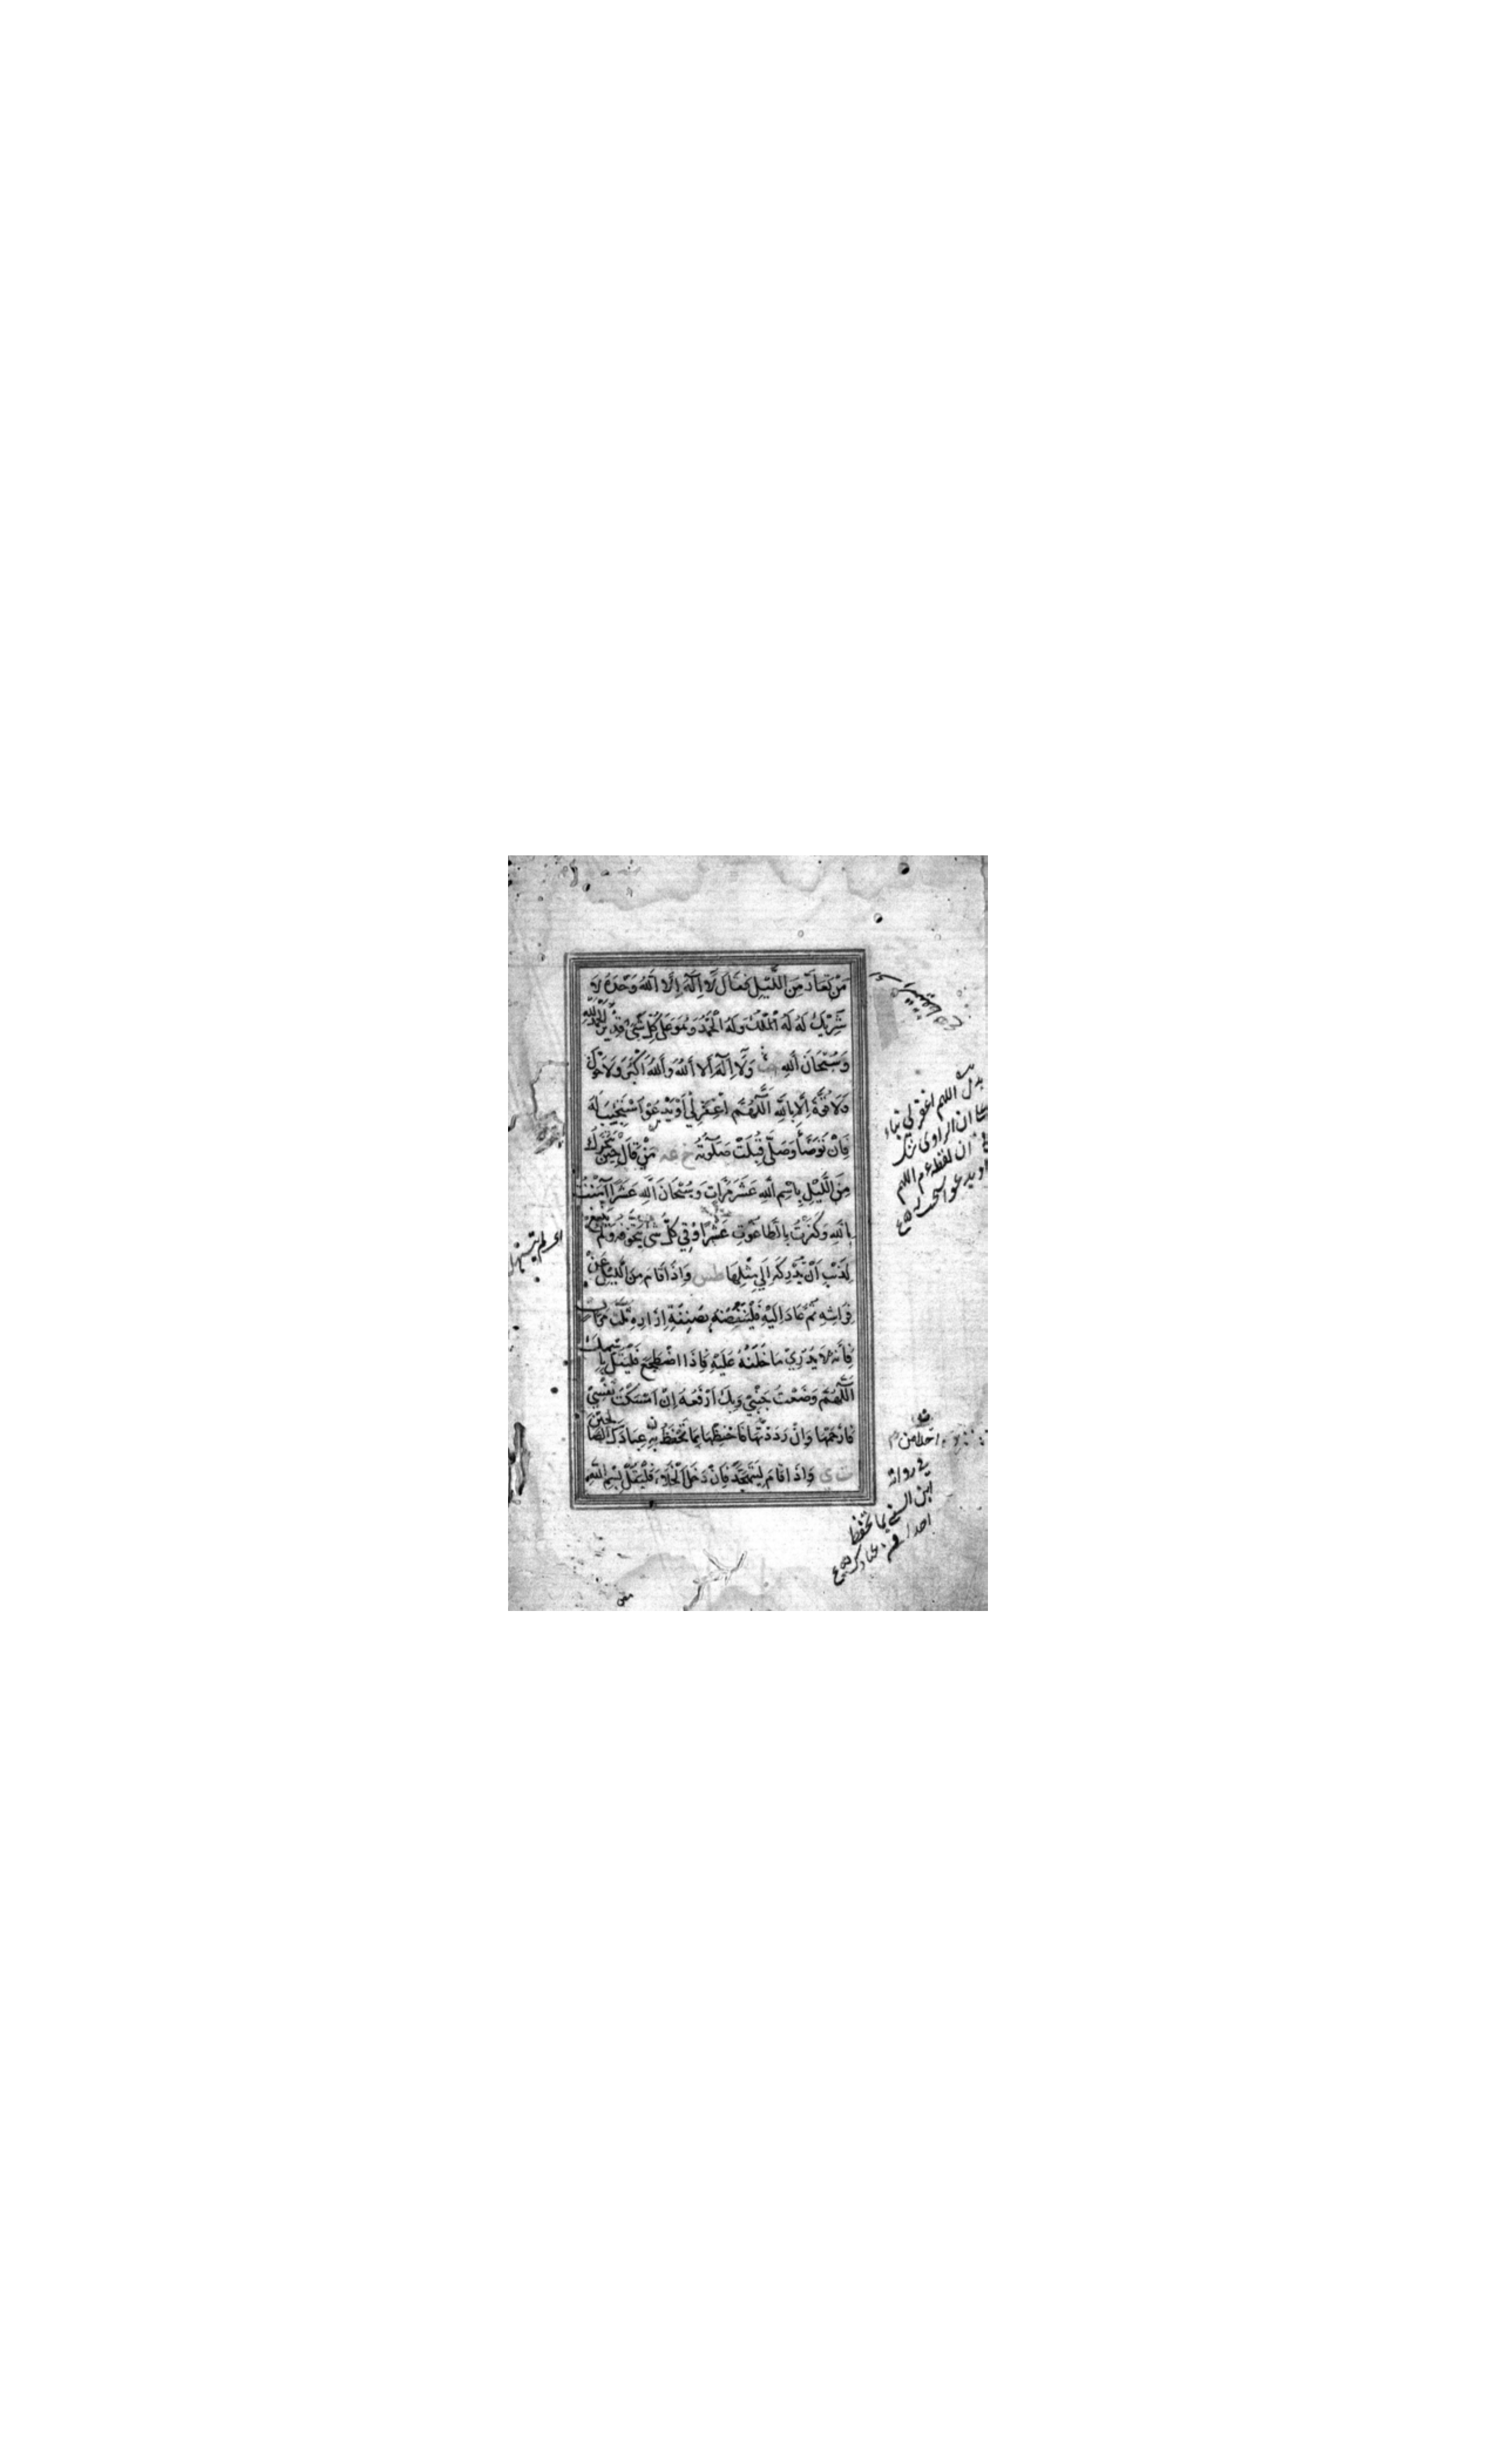 مَنْ تَعَارَّ مِنَ اللَّيْلِ فَقَالَ لَا اِلٰهَ اِلَّا اللهُ وَحْدَهُ لَا
شَرِيْكَ لَهُ لَهُ الْمُلْكُ وَلَهُ الْحَمْدُ وَهُوَ عَلٰى كُلِّ شَيْءٍ قَدِيْرٌ اَلْحَمْدُ لِلّٰهِ
وَسُبْحَانَ اللهِ وَلَا اِلٰهَ اِلَّا اللهُ وَاللهُ اَكْبَرُ وَلَا حَوْلَ
وَلَا قُوَّةَ اِلَّا بِاللهِ اَللّٰهُمَّ اغْفِرْ لِيْ اَوْ يَدْعُوْ اسْتُجِيْبَ لَهُ
فَاِنْ تَوَضَّأَ وَصَلّٰى قُبِلَتْ صَلٰوتُهُ خ عه مَنْ قَالَ حِيْنَ يَتَحَرَّكُ
مِنَ اللَّيْلِ بِاسْمِ اللهِ عَشْرَ مَرَّاتٍ وَسُبْحَانَ اللهِ عَشْرًا اٰمَنْتُ
بِاللهِ وَكَفَرْتُ بِالطَّاغُوْتِ عَشْرًا وُقِيَ كُلَّ شَيْءٍ يَتَخَوَّفُهُ وَلَمْ يَنْبَغِ
لِذَنْبٍ اَنْ يُدْرِكَهُ اِلٰى مِثْلِهَا طس وَاِذَا قَامَ مِنَ اللَّيْلِ عَنْ
فِرَاشِهِ ثُمَّ عَادَ اِلَيْهِ فَلْيَنْفُضْهُ بِصَنِفَةِ اِزَارِهِ ثَلٰثَ مَرَّاتٍ
فَاِنَّهُ لَا يَدْرِيْ مَا خَلَفَهُ عَلَيْهِ فَاِذَا اضْطَجَعَ فَلْيَقُلْ بِاسْمِكَ
اَللّٰهُمَّ وَضَعْتُ جَنْبِيْ وَبِكَ اَرْفَعُهُ اِنْ اَمْسَكْتَ نَفْسِيْ
فَارْحَمْهَا وَاِنْ رَدَدْتَّهَا فَاحْفَظْهَا بِمَا تَحْفَظُ بِهِ عِبَادَكَ الصَّالِحِيْنَ
ت ي وَاِذَا قَامَ لِيَتَهَجَّدَ فَاِنْ دَخَلَ الْخَلَاءَ فَلْيَقُلْ بِسْمِ اللهِ
بدل اللهم اغفر لي بناء
ان الراوى شك
ان لفظه ءم اللهم
او يدعو استجب له
في رواية
ابن السني بما تحفظ
احدا من عبادك